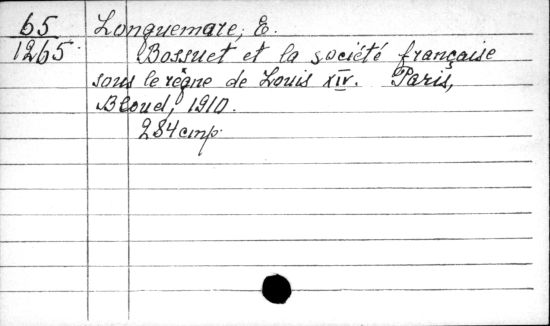 65 Longuemare, E.
1265. Bossuet et la société française
sous le règne de Louis XIV. Paris,
Bloud, 1910.
284 стр.